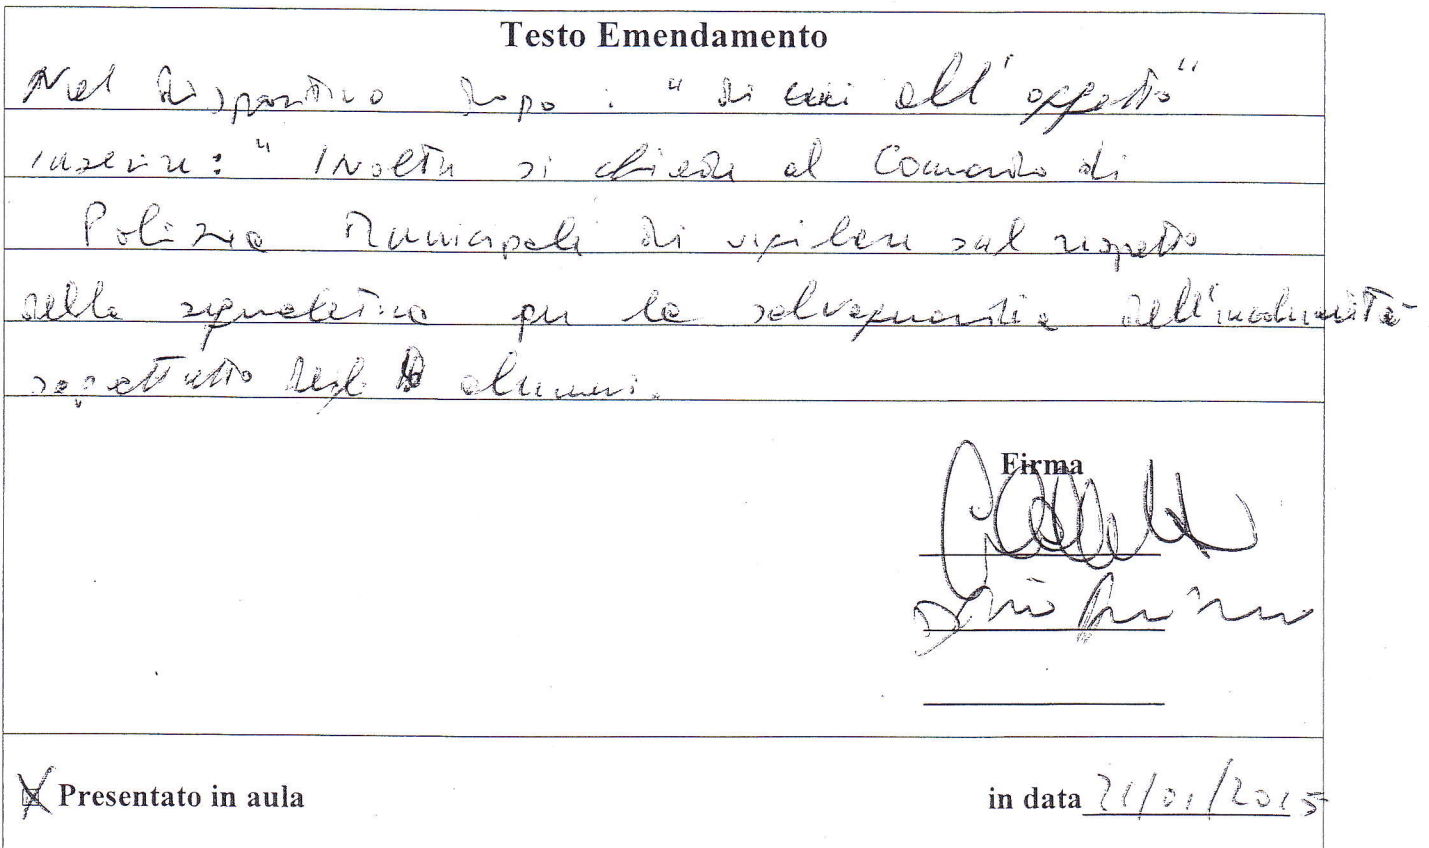 Testo Emendamento
Nel dispositivo dopo: "di cui all'oggetto"
inserire: "Inoltre si chiede al Comando di
Polizia Municipale di vigilare sul rispetto
della segnaletica per la salvaguardia dell'incolumità
soprattutto degli alunni.
Firma
Presentato in aula in data 21/01/2015